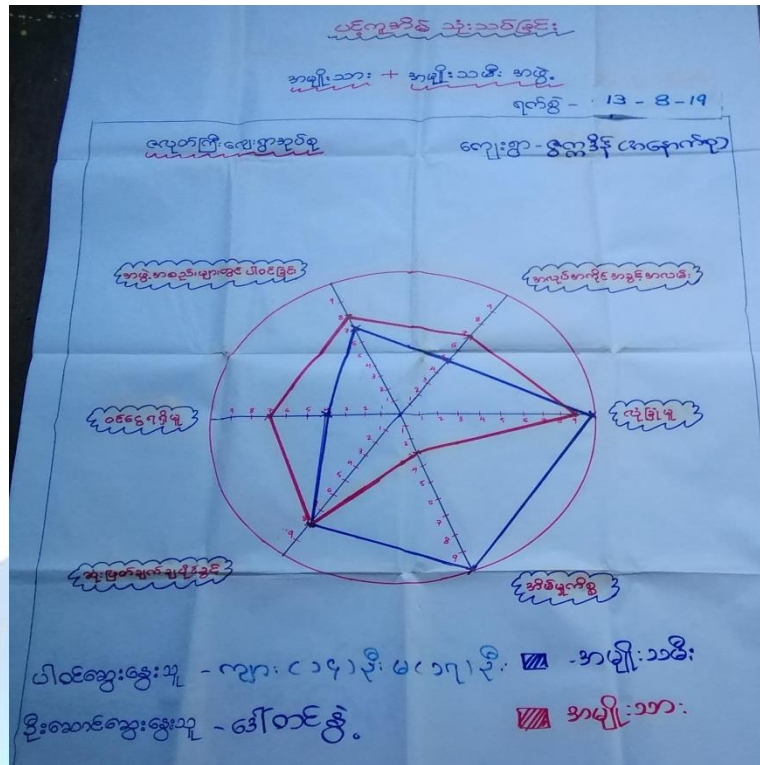 ပင့်ကူအိမ် သုံးသပ်ခြင်း
အမျိုးသား + အမျိုးသမီး အဖွဲ့
ရက်စွဲ - 13 - 8 - 19
ဇလုတ်ကြီးကျေးရွာအုပ်စု
ကျေးရွာ - ဇွဲကဒိန် (အနောက်စု)
အဖွဲ့အစည်းများတွင် ပါဝင်ခြင်း
အလုပ်အကိုင်အခွင့်အလမ်း
ဝင်ငွေရရှိမှု
လုံခြုံမှု
ဆုံးဖြတ်ချက်ချပိုင်ခွင့်
အိမ်မှုကိစ္စ
ပါဝင်ဆွေးနွေးသူ - ကျား (၁၄) ဦး မ (၁၇) ဦး
-အမျိုးသမီး
ဦးဆောင်ဆွေးနွေးသူ - ဒေါ်တင်နွဲ့
အမျိုးသား